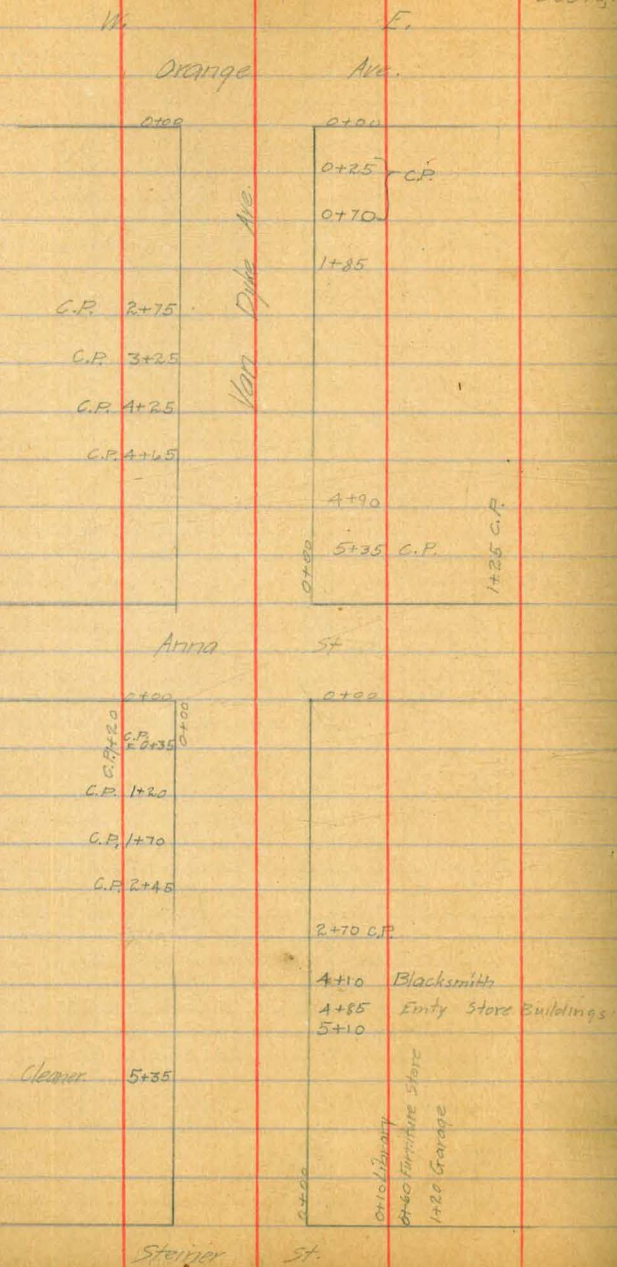 W. E.
Orange Ave.
0+00 0+00
0+25 C.P.
0+70
Van Dyke Ave.
1+85
C.P. 2+75
C.P. 3+25
C.P. 4+25
C.P. 4+65
4+90
5+35 C.P.
0+00
1+25 C.P.
Anna St
0+00 0+00
C.P. 1+20
C.P.
0+35
0+00
C.P. 1+20
C.P. 1+70
C.P. 2+45
2+70 C.P.
4+10 Blacksmith
4+85 Emty Store Buildings
5+10
Cleaner. 5+35
0+00
0+10 Library
0+60 Furniture Store
1+20 Garage
Steiner St.